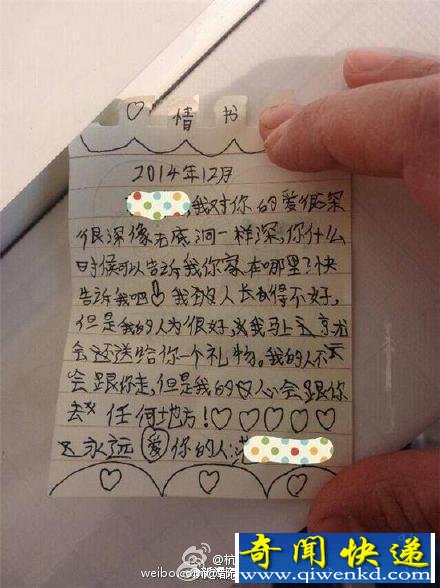 ♡ 情书
2014年12月
,我对你的爱很深
很深像无底洞一样深,你什么
时候可以告诉我你家在哪里?快
告诉我吧!我的人长得不好,
但是我的人为很好,我马上
会还送给你一个礼物。我的人不
会跟你走,但是我的心会跟你
去任何地方!♡♡♡♡♡
永远爱你的人:
weibo.com
奇闻快递
www.qiwenkd.com